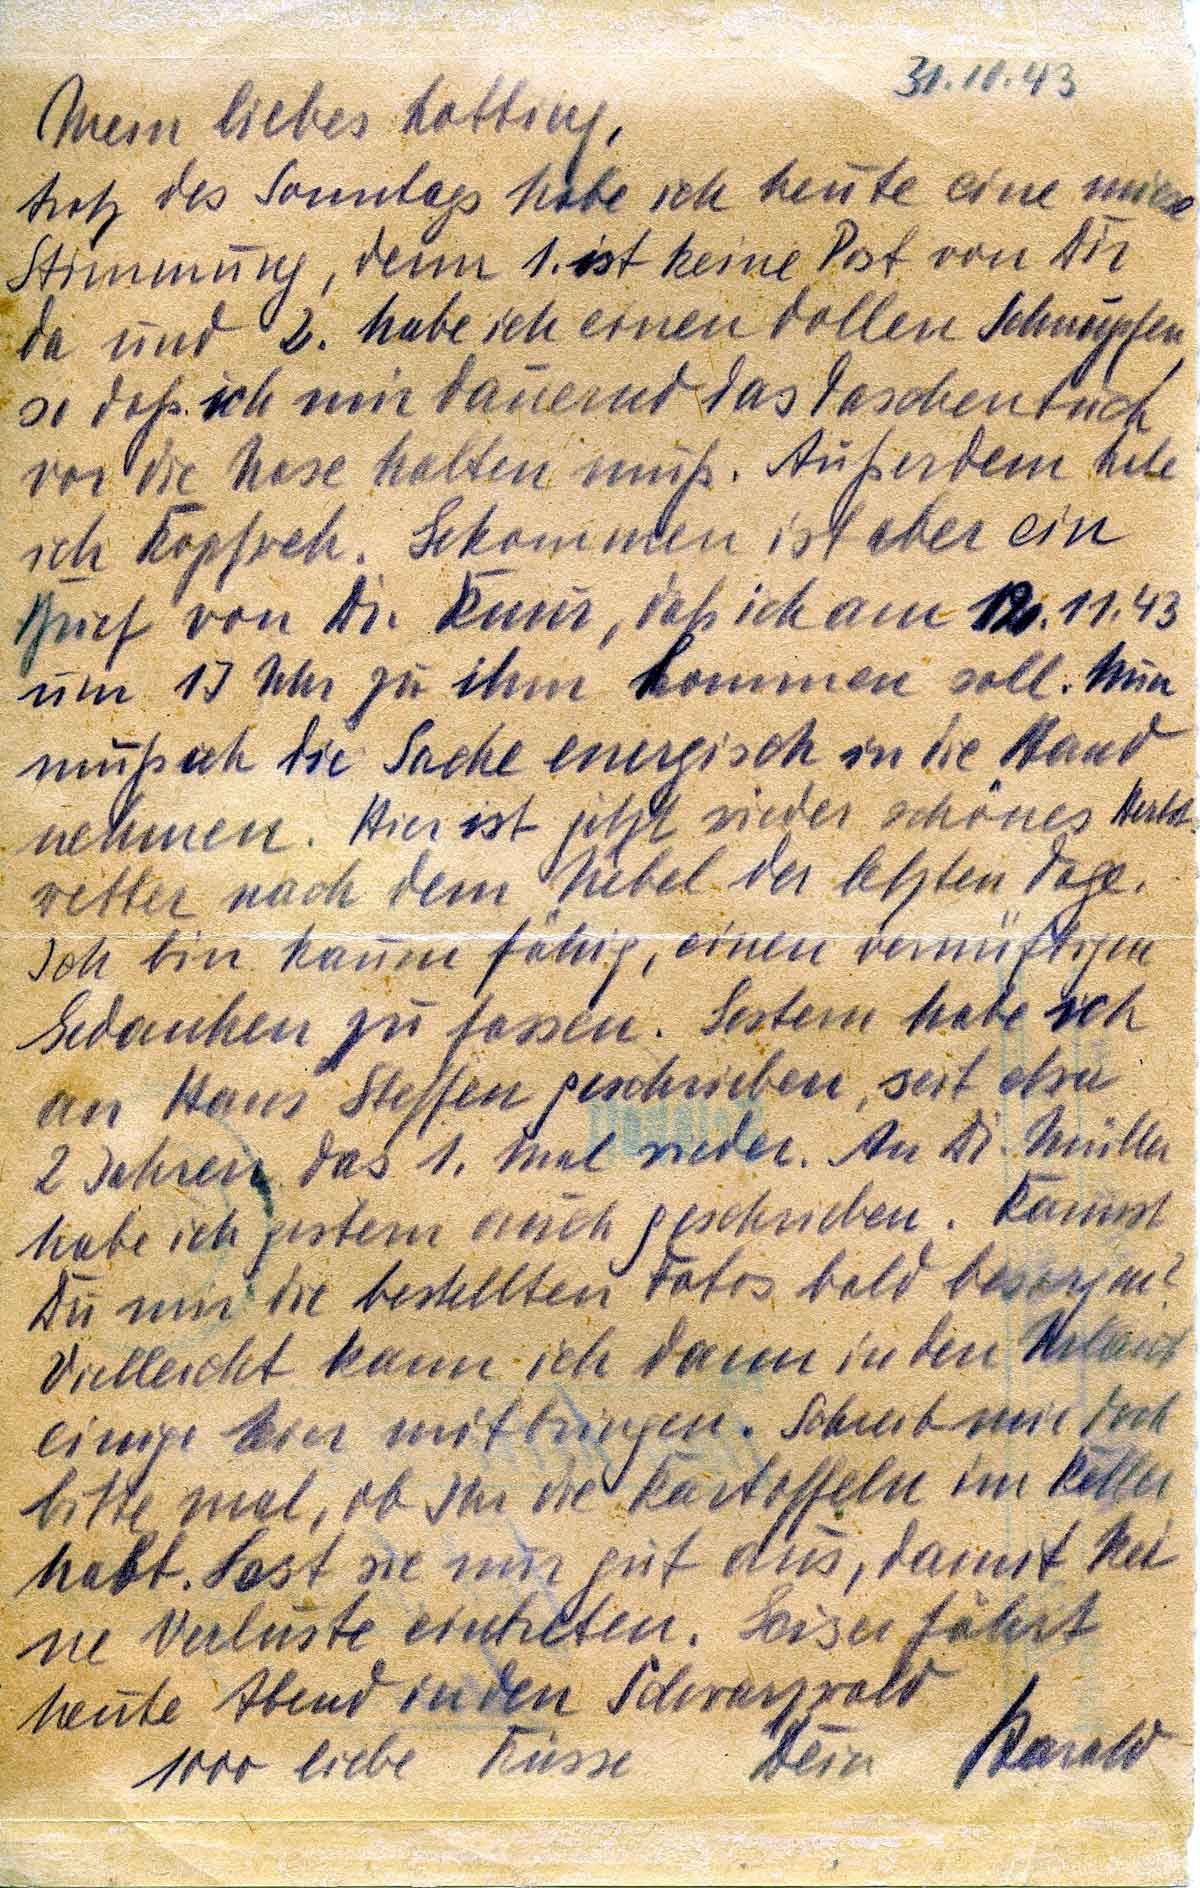 31.10.43
Mein liebes Lotting,
trotz des Sonntags habe ich heute eine miese
Stimmung, denn 1. ist keine Post von Dir
da und 2. habe ich einen dollen Schnupfen,
so daß ich mir dauernd das Taschentuch
vor die Nase halten muß. Außerdem habe
ich Kopfweh. Gekommen ist aber ein
Brief von Dr. daß ich am 12.11.43
um 17 Uhr zu ihm kommen soll. Nun
muß ich die Sache energisch in die Hand
nehmen. Hier ist jetzt wieder schönes Herbst-
wetter nach dem Nebel der letzten Tage.
Ich bin kaum fähig, einen vernüftigen
Gedanken zu fassen. Gestern habe ich
an Hans Steffen geschrieben, seit etwa
2 Jahren das 1. Mal wieder. An Dr. Müller
habe ich gestern auch geschrieben. Kannst
Du mir die bestellten Fotos bald besorgen?
Vielleicht kann ich dann in den Urlaub
einige hier mitbringen. Schreib mir doch
bitte mal, ob Ihr die Kartoffeln im Keller
habt. Lest sie nur gut aus, damit kei
ne Verluste eintreten. Geiser fährt
heute Abend in den Schwarzwald
1000 liebe Küsse Dein Harald